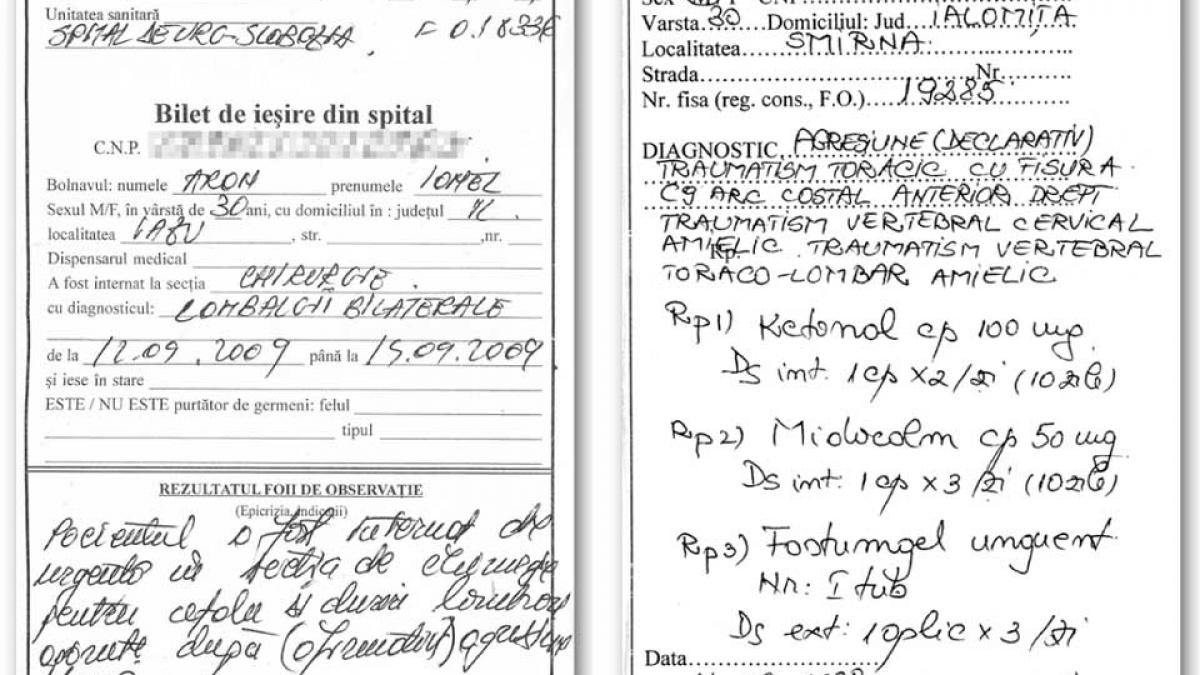 Unitatea sanitară
SPITAL DE URG. SLOBOZIA F 0.18336
Bilet de ieşire din spital
C.N.P.
Bolnavul: numele ARON prenumele IONEL
Sexul M/F, în vârstă de 30 ani, cu domiciliul în : judeţul IL.
localitatea LAZU, str. ,nr.
Dispensarul medical
A fost internat la secţia CHIRURGIE.
cu diagnosticul: LOMBALGII BILATERALE
de la 12.09.2009 până la 15.09.2009
şi iese în stare
ESTE / NU ESTE purtător de germeni: felul
tipul
REZULTATUL FOII DE OBSERVAŢIE
(Epicriza, indicaţii)
Pacientul a fost internat de
urgenta in sectia de chirurgie
pentru cefalee si dureri lombare
aparute după (afirmativ) agresiune
Varsta 30 Domiciliul: Jud. IALOMIŢA
Localitatea SMIRNA
Strada Nr
Nr. fisa (reg. cons., F.O.) 19285
DIAGNOSTIC AGRESIUNE (DECLARATIV)
TRAUMATISM TORACIC CU FISURA
C9 ARC COSTAL ANTERIOR DREPT
TRAUMATISM VERTEBRAL CERVICAL
AMIELIC. TRAUMATISM VERTEBRAL
Rp.
TORACO-LOMBAR AMIELIC
Rp1) Ketonal cp 100 mg
Ds int: 1cp x2/zi (10 zile)
Rp2) Midocalm cp 50 mg
Ds int: 1cp x 3/zi (10 zile)
Rp3) Fastumgel unguent
Nr: I tub
Ds ext: 1 aplic x 3/zi
Data